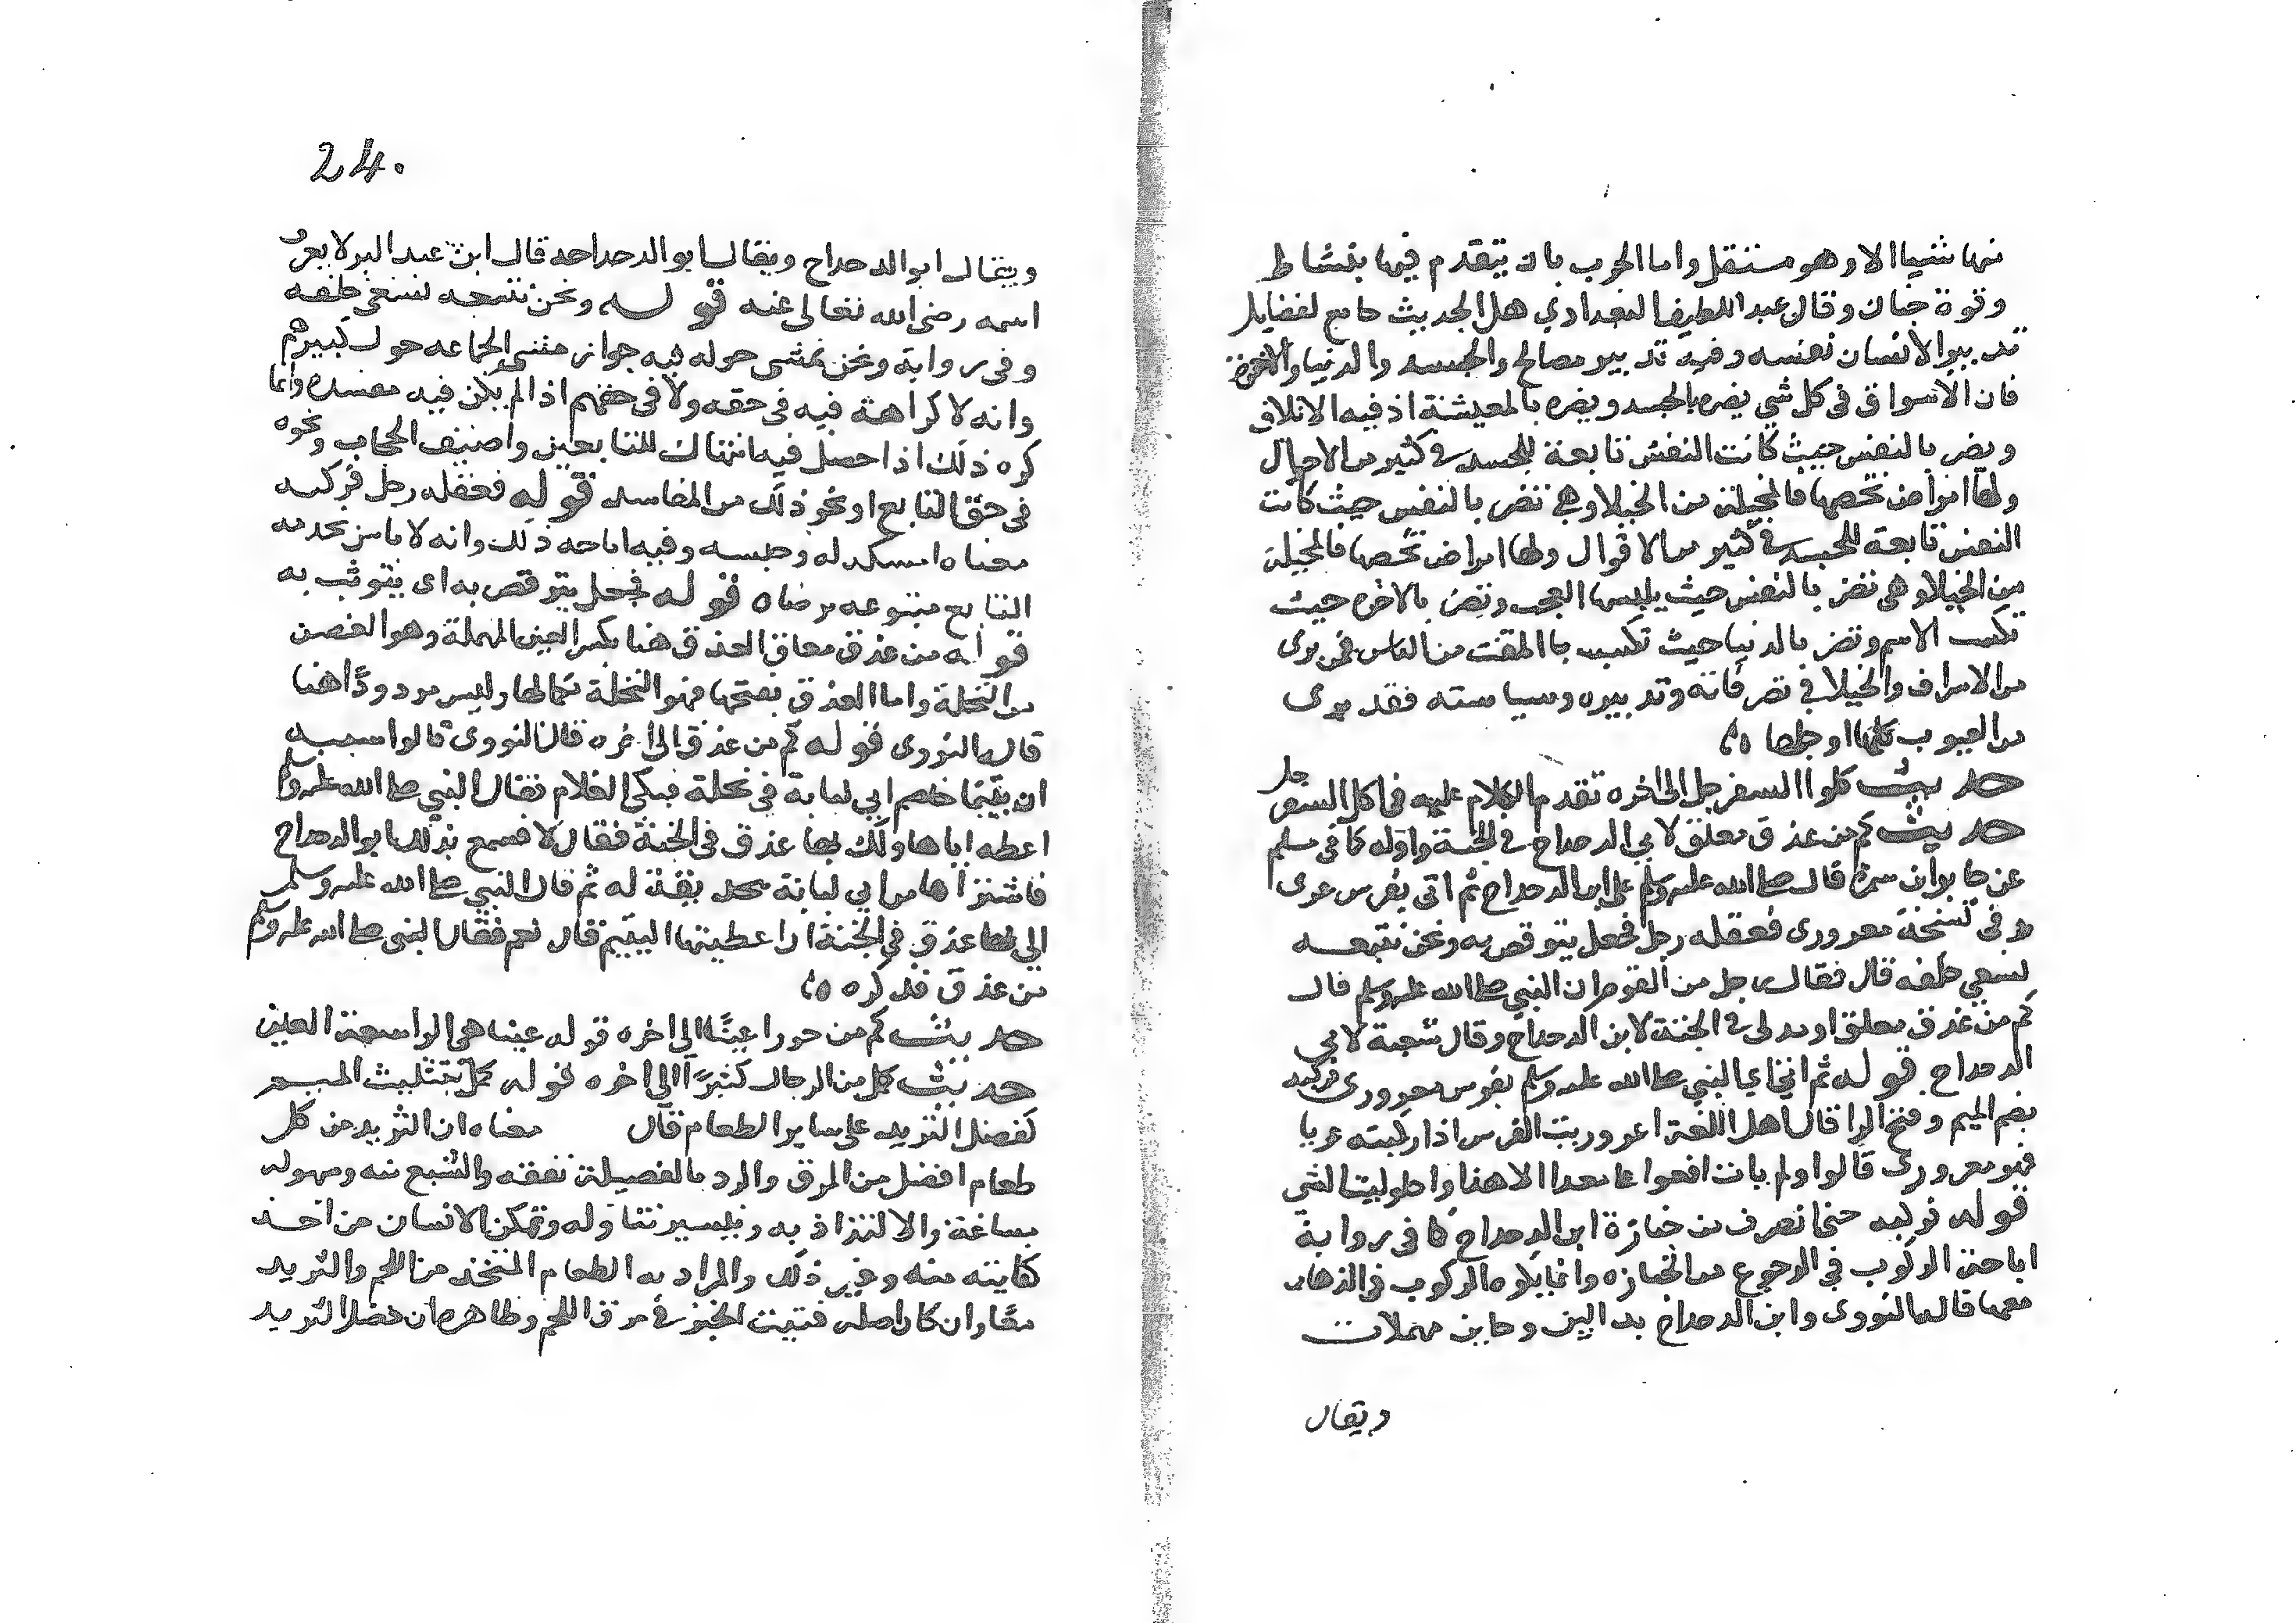 منها شيا الا وهو مستقل واما الحرب بان يتقدم فيها بنشاط
وقوة جنان وقال عبد اللطيف البغدادي هذا الحديث جامع لفضايل
تدبير الانسان نفسه وفيه تدبير مصالح والجسد والدنيا والاخرة
فان الاسراف في كل شي يضر بالجسد ويضر بالمعيشة اذ فيه الاتلاف
ويضر بالنفس حيث كانت النفس تابعة للجسد في كثير من الاحوال
ولها امراض تخصها فالمخيلة من الخيلا وهي تضر بالنفس حيث كانت
النفس تابعة للجسد في كثير من الاقوال ولها امراض تخصها فالمخيلة
من الخيلا وهي تضر بالنفس حيث يلبسها العجب وتضر بالاخره حيث
تكسب الاسم وتضر بالدنيا حيث تكسب باالمقت من الناس فمن برى
من الاسراف والخيلا في تصرفاته وتدبيره وسياسته فقد برى
من العيوب كلها او جلها
حديث كلوا السفرجل الى اخره تقدم الكلام عليه في اكل السفرجل
حديث كم من عذق معلق لابي الدحداح في الجنة واوله كما في مسلم
عن جابر ابن سمرة قال صلى الله عليه وسلم على ابن الدحداح ثم اتى بفرس عرى
وفي نسخة معرورى فعقله رجل فجعل يتوقص به ونحن نتبعه
نسعى خلفه قال فقال رجل من القوم ان النبي صلى الله عليه وسلم قال
كم من عذق معلق او مدلى في الجنة لابن الدحداح وقال شعبة لابي
الدحداح قوله ثم اتى اي النبي صلى الله عليه وسلم بفرس معرورى فركبه
بضم الميم وفتح الرا قال اهل اللغة اعروريت الفرس اذا ركبته عريا
فهو معرورى قالوا ولم يات افعوعل معدا الا هذا واحلوليت الشي
قوله فركبه حين انصرف من جنازة ابن الدحداح كما في رواية
اباحة الركوب في الرجوع من الجنازه وانما يكره الركوب في الذهاب
معها قاله النووى وابن الدحداح بدالين وحاين مهملات
ويقال
24.
ويقال ابو الدحداح ويقال ابو الدحداحه قال ابن عبد البر لا يعرف
اسمه رضى الله تعالى عنه قوله ونحن نتبعه نسعى خلفه
وفي رواية ونحن نمشى حوله فيه جواز مشى الجماعه حول كبيرهم
وانه لا كراهة فيه في حقه ولا في حقهم اذا لم يكن فيه مفسدة وانما
كره ذلك اذا حصل فيه انتهاك للتابعين واصنيف الحجاب ونحوه
في حق التابع او نحو ذلك من المفاسد قوله فعقله رجل فركبه
معناه امسكه له وحبسه وفيه اباحه ذلك وانه لا باس بخدمه
التابع متبوعه برضاه قوله فجعل يتوقص به اى يتوثب به
قوله من عذق معلق العذق هنا بكسر العين المهملة وهو الغصن
من النخلة واما العذق بفتحها فهو النخلة بكمالها وليس مردودا هنا
قاله النووى قوله كم من عذق الى اخره قال النووى قالوا سببه
ان يتيما خاصم ابي لبابة في نخلة فبكى الغلام فقال النبي صلى الله عليه وسلم
اعطه اياها ولك بها عذق في الجنة فقال لا فسمع بذلك ابو الدحداح
فاشتراها من ابي لبابة بحديقة له ثم قال للنبي صلى الله عليه وسلم
الي بها عذق في الجنة ان اعطيتها اليتيم قال نعم فقال النبي صلى الله عليه وسلم
من عذق فذكره
حديث كم من حورا عينا الى اخره قوله عينا هي الواسعة العين
حديث كمل من الرجال كثيرا الى اخره قوله كمل بتثليث الميم
كفضل الثريد على ساير الطعام قال معناه ان الثريد من كل
طعام افضل من المرق والمراد بالفضيلة نفعه والشبع منه وسهوله
مساغته والالتذاذ به وتيسير تناوله وتمكن الانسان من اخذ
كفايته منه وغير ذلك والمراد به الطعام المتخذ من اللحم والثريد
معا وان كان اصله فتيت الخبز في مرق اللحم وظاهره ان فضل الثريد